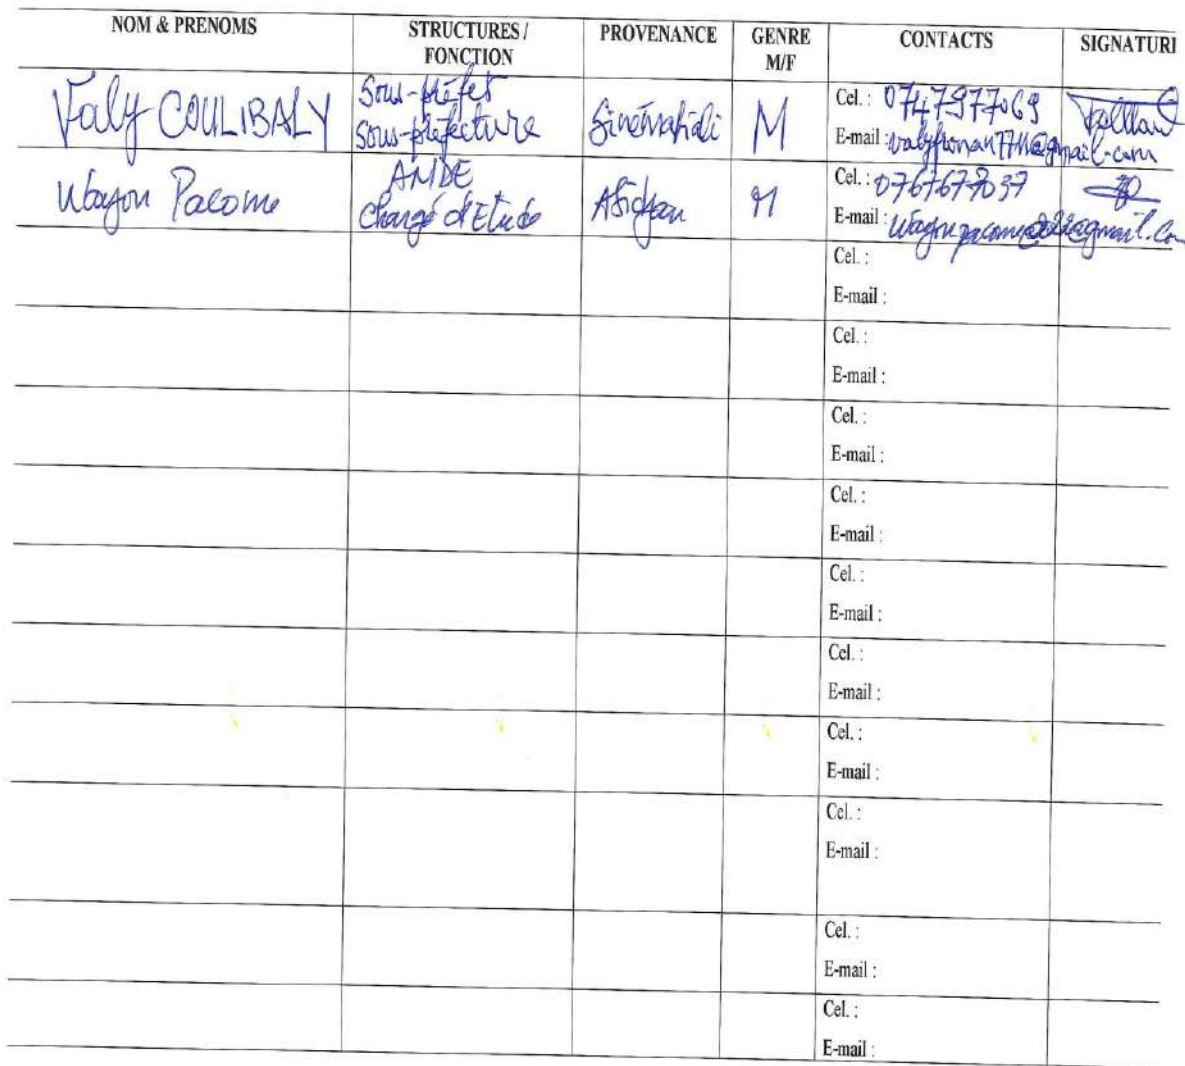 NOM & PRENOMS STRUCTURES / FONCTION PROVENANCE GENRE M/F CONTACTS SIGNATURE
Valy COULIBALY Sous-préfet Sous-préfecture Sinématiali M Cel. : 0747977069
E-mail :
Pacome ANDE Chargé d'Etude Abidjan M Cel. : 0767677037
E-mail :
Cel. :
E-mail :
Cel. :
E-mail :
Cel. :
E-mail :
Cel. :
E-mail :
Cel. :
E-mail :
Cel. :
E-mail :
Cel. :
E-mail :
Cel. :
E-mail :
Cel. :
E-mail :
Cel. :
E-mail :